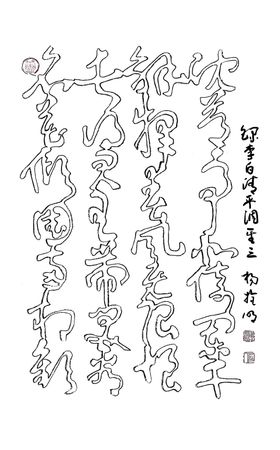 名花傾國兩相歡
長得君王帶笑看
解釋春風無限恨
沈香亭北倚闌干
錄李白清平调之三 杨